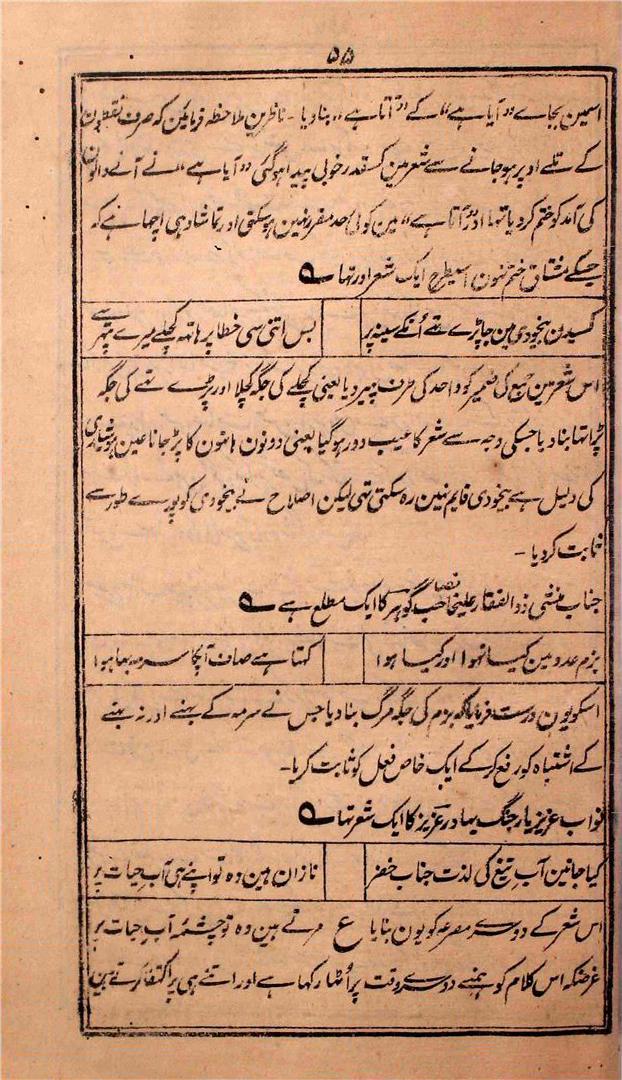 ۵۵
اسمین بجاے ”آیا ہے“ کے ”آتا ہے“ بنا دیا ۔ ناظرین ملاحظہ فرمائین کہ صرف نقطون
کے تلے اوپر ہو جانے سے شعر مین کسقدر خوبی پیدا ہو گئی ”آیا ہے“ نے آنے والون
کی آمد کو ختم کر دیا تھا اور ”آتا ہے“ مین کوئی حد مقرر نہین ہو سکتی اور تماشا وہی اچھا ہے کہ
جسکے مشتاق ختم نہون اسیطرح ایک شعر اور تھا ؎
کسیدن بیخودی مین جا پڑے تھے اُنکے سینہ پر
بس اتنی سی خطا پر ہاتھ کچلے میرے پتھر سے
اس شعر مین جمع کی ضمیر کو واحد کی طرف پھیر دیا یعنی کچلے کی جگہ کچلا اور پڑے تھے کی جگہ
پڑا تھا بنا دیا جسکی وجہ سے شعر کا عیب دور ہو گیا یعنی دونون ہاتھون کا پڑ جانا عین ہوشیاری
کی دلیل ہے بیخودی قایم نہین رہ سکتی تھی لیکن اصلاح نے بیخودی کو پورے طور سے
ثابت کر دیا ۔
جناب منشی ذوالفقار علیخانصاحب گوہر کا ایک مطلع ہے ؎
بزم عدو مین کیا نہوا اور کیا ہوا
کہتا ہے صاف آپکا سرمہ بہا ہوا
اسکو یون درست فرمایا کہ بزم کی جگہ مرگ بنا دیا جس نے سرمہ کے بہنے اور نہ بہنے
کے اشتباہ کو رفع کر کے ایک خاص فعل کو ثابت کر دیا۔
نواب عزیز یار جنگ بہادر عزیز کا ایک شعر تھا ؎
کیا جانین آب تیغ کی لذت جناب خضر
نازان ہین وہ تو اپنے ہی آبِ حیات پر
اس شعر کے دوسرے مصرعہ کو یون بنایا ع مرتے ہین وہ تو چشمہ آبِ حیات پر
غرضکہ اس کلام کو ہمنے دوسرے وقت پر اُٹھا رکھا ہے اور اتنے ہی پر اکتفا کرتے ہین